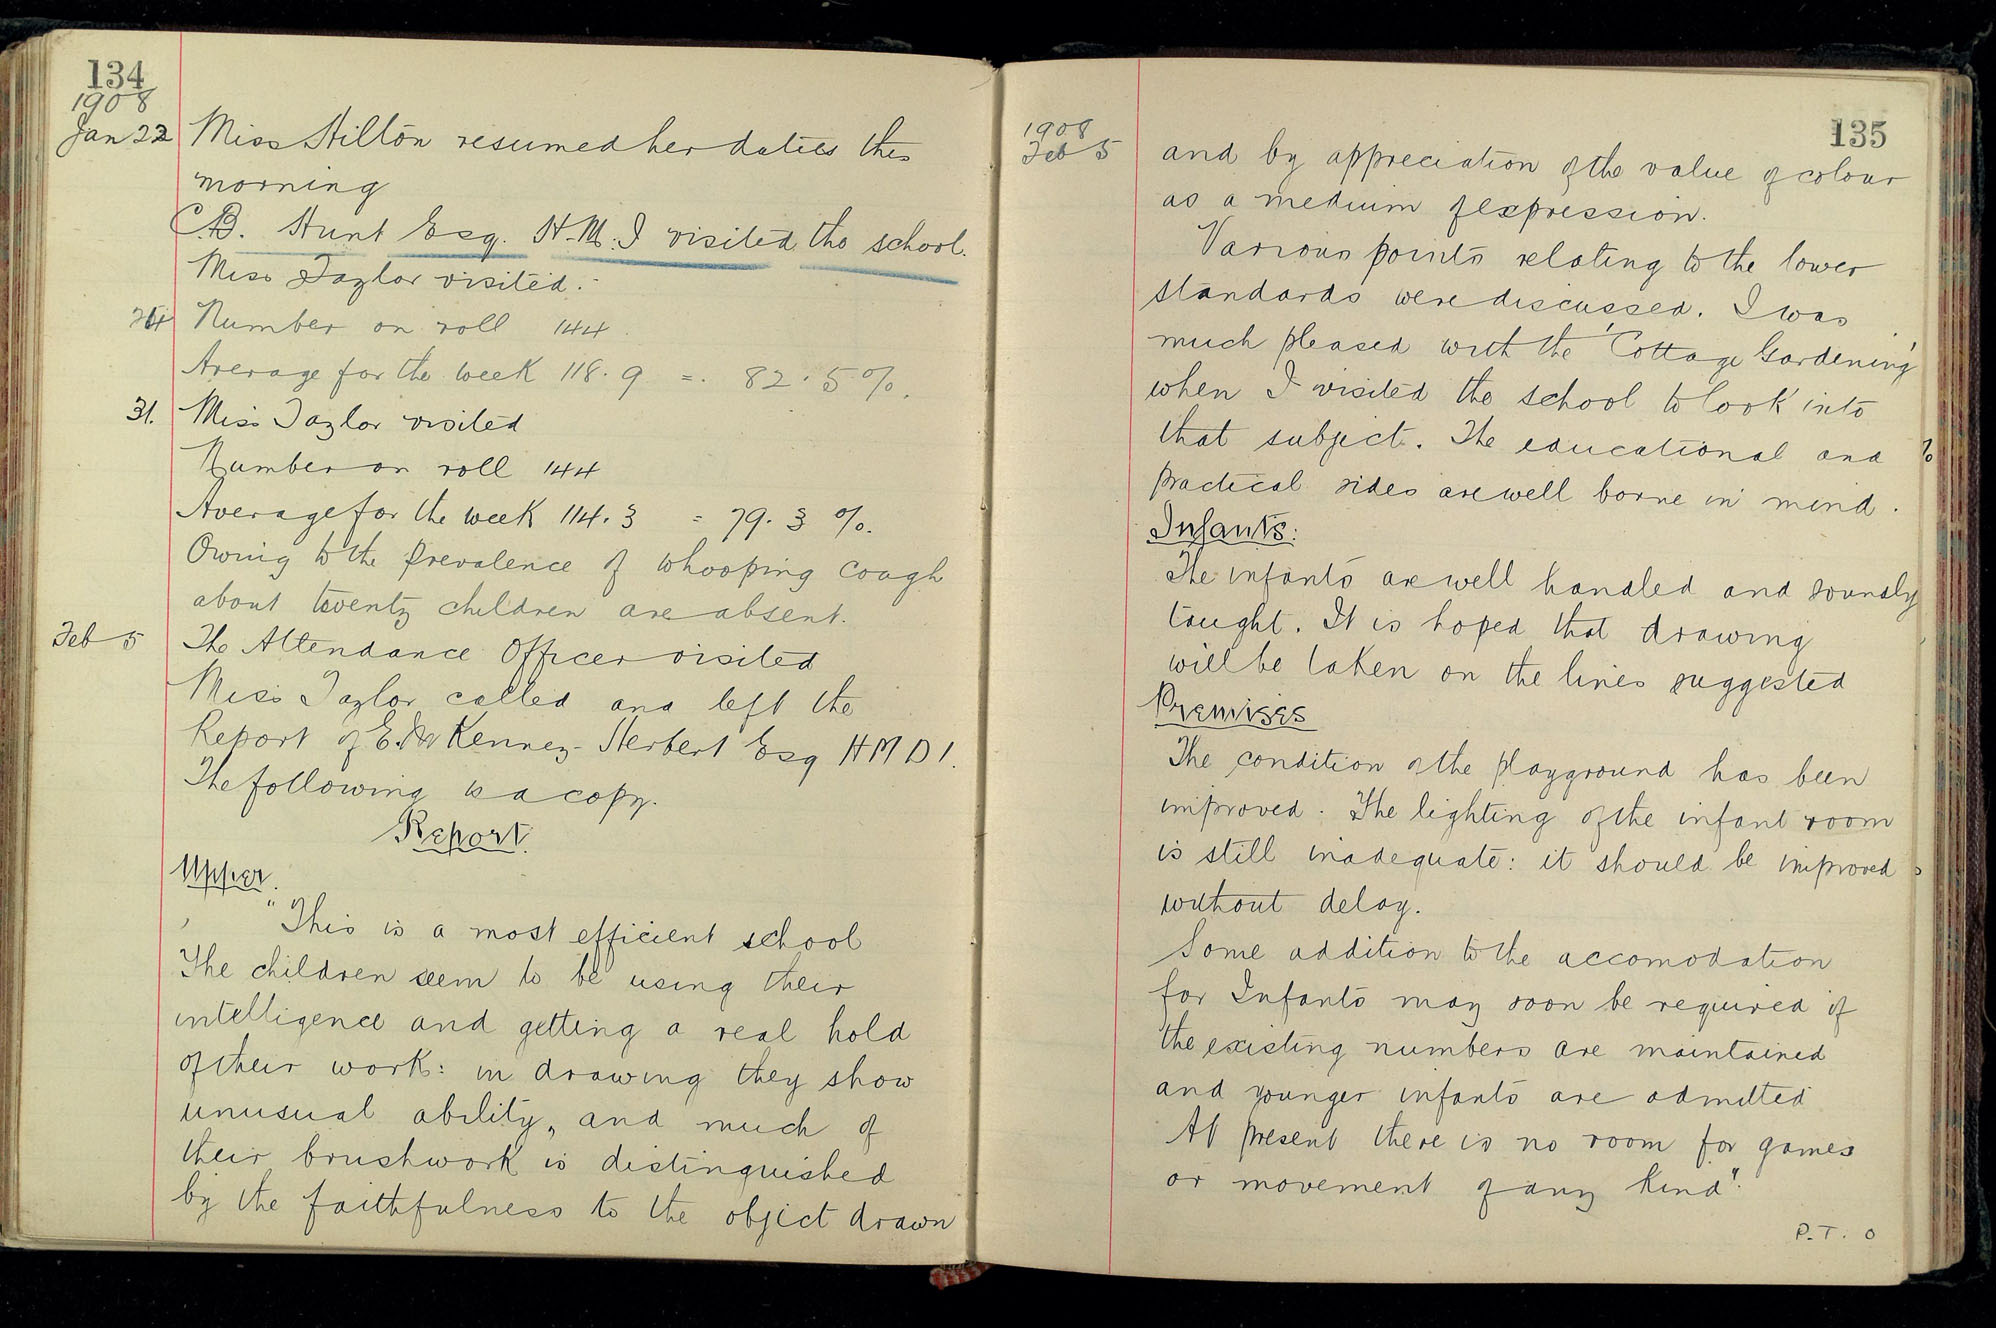 134
1908
Jan 22 Miss Hilton resumed her duties this
morning
C.B. Hunt Esq. H.M.I visited the school.
Miss Taylor visited.
24 Number on roll 144
Average for the week 118.9 = 82.5%.
31. Miss Taylor visited
Number on roll 144
Average for the week 114.3 = 79.3 %.
Owing to the prevalence of whooping cough
about twenty children are absent.
Feb 5 The Attendance Officer visited
Miss Taylor called and left the
Report of E. Kenney-Herbert Esq HMDI.
The following is a copy.
Report.
Upper.
"This is a most efficient school
The children seem to be using their
intelligence and getting a real hold
of their work: in drawing they show
unusual ability, and much of
their brushwork is distinguished
by the faithfulness to the object drawn
135
1908
Feb 5 and by appreciation of the value of colour
as a medium of expression.
Various points relating to the lower
standards were discussed. I was
much pleased with the 'Cottage Gardening'
when I visited the school to look into
that subject. The educational and
practical sides are well borne in mind.
Infants:
The infants are well handled and soundly
taught. It is hoped that drawing
will be taken on the lines suggested
Premises
The condition of the playground has been
improved. The lighting of the infant room
is still inadequate: it should be improved
without delay.
Some addition to the accomodation
for Infants may soon be required if
the existing numbers are maintained
and younger infants are admitted
At present there is no room for games
or movement of any kind".
P.T.O